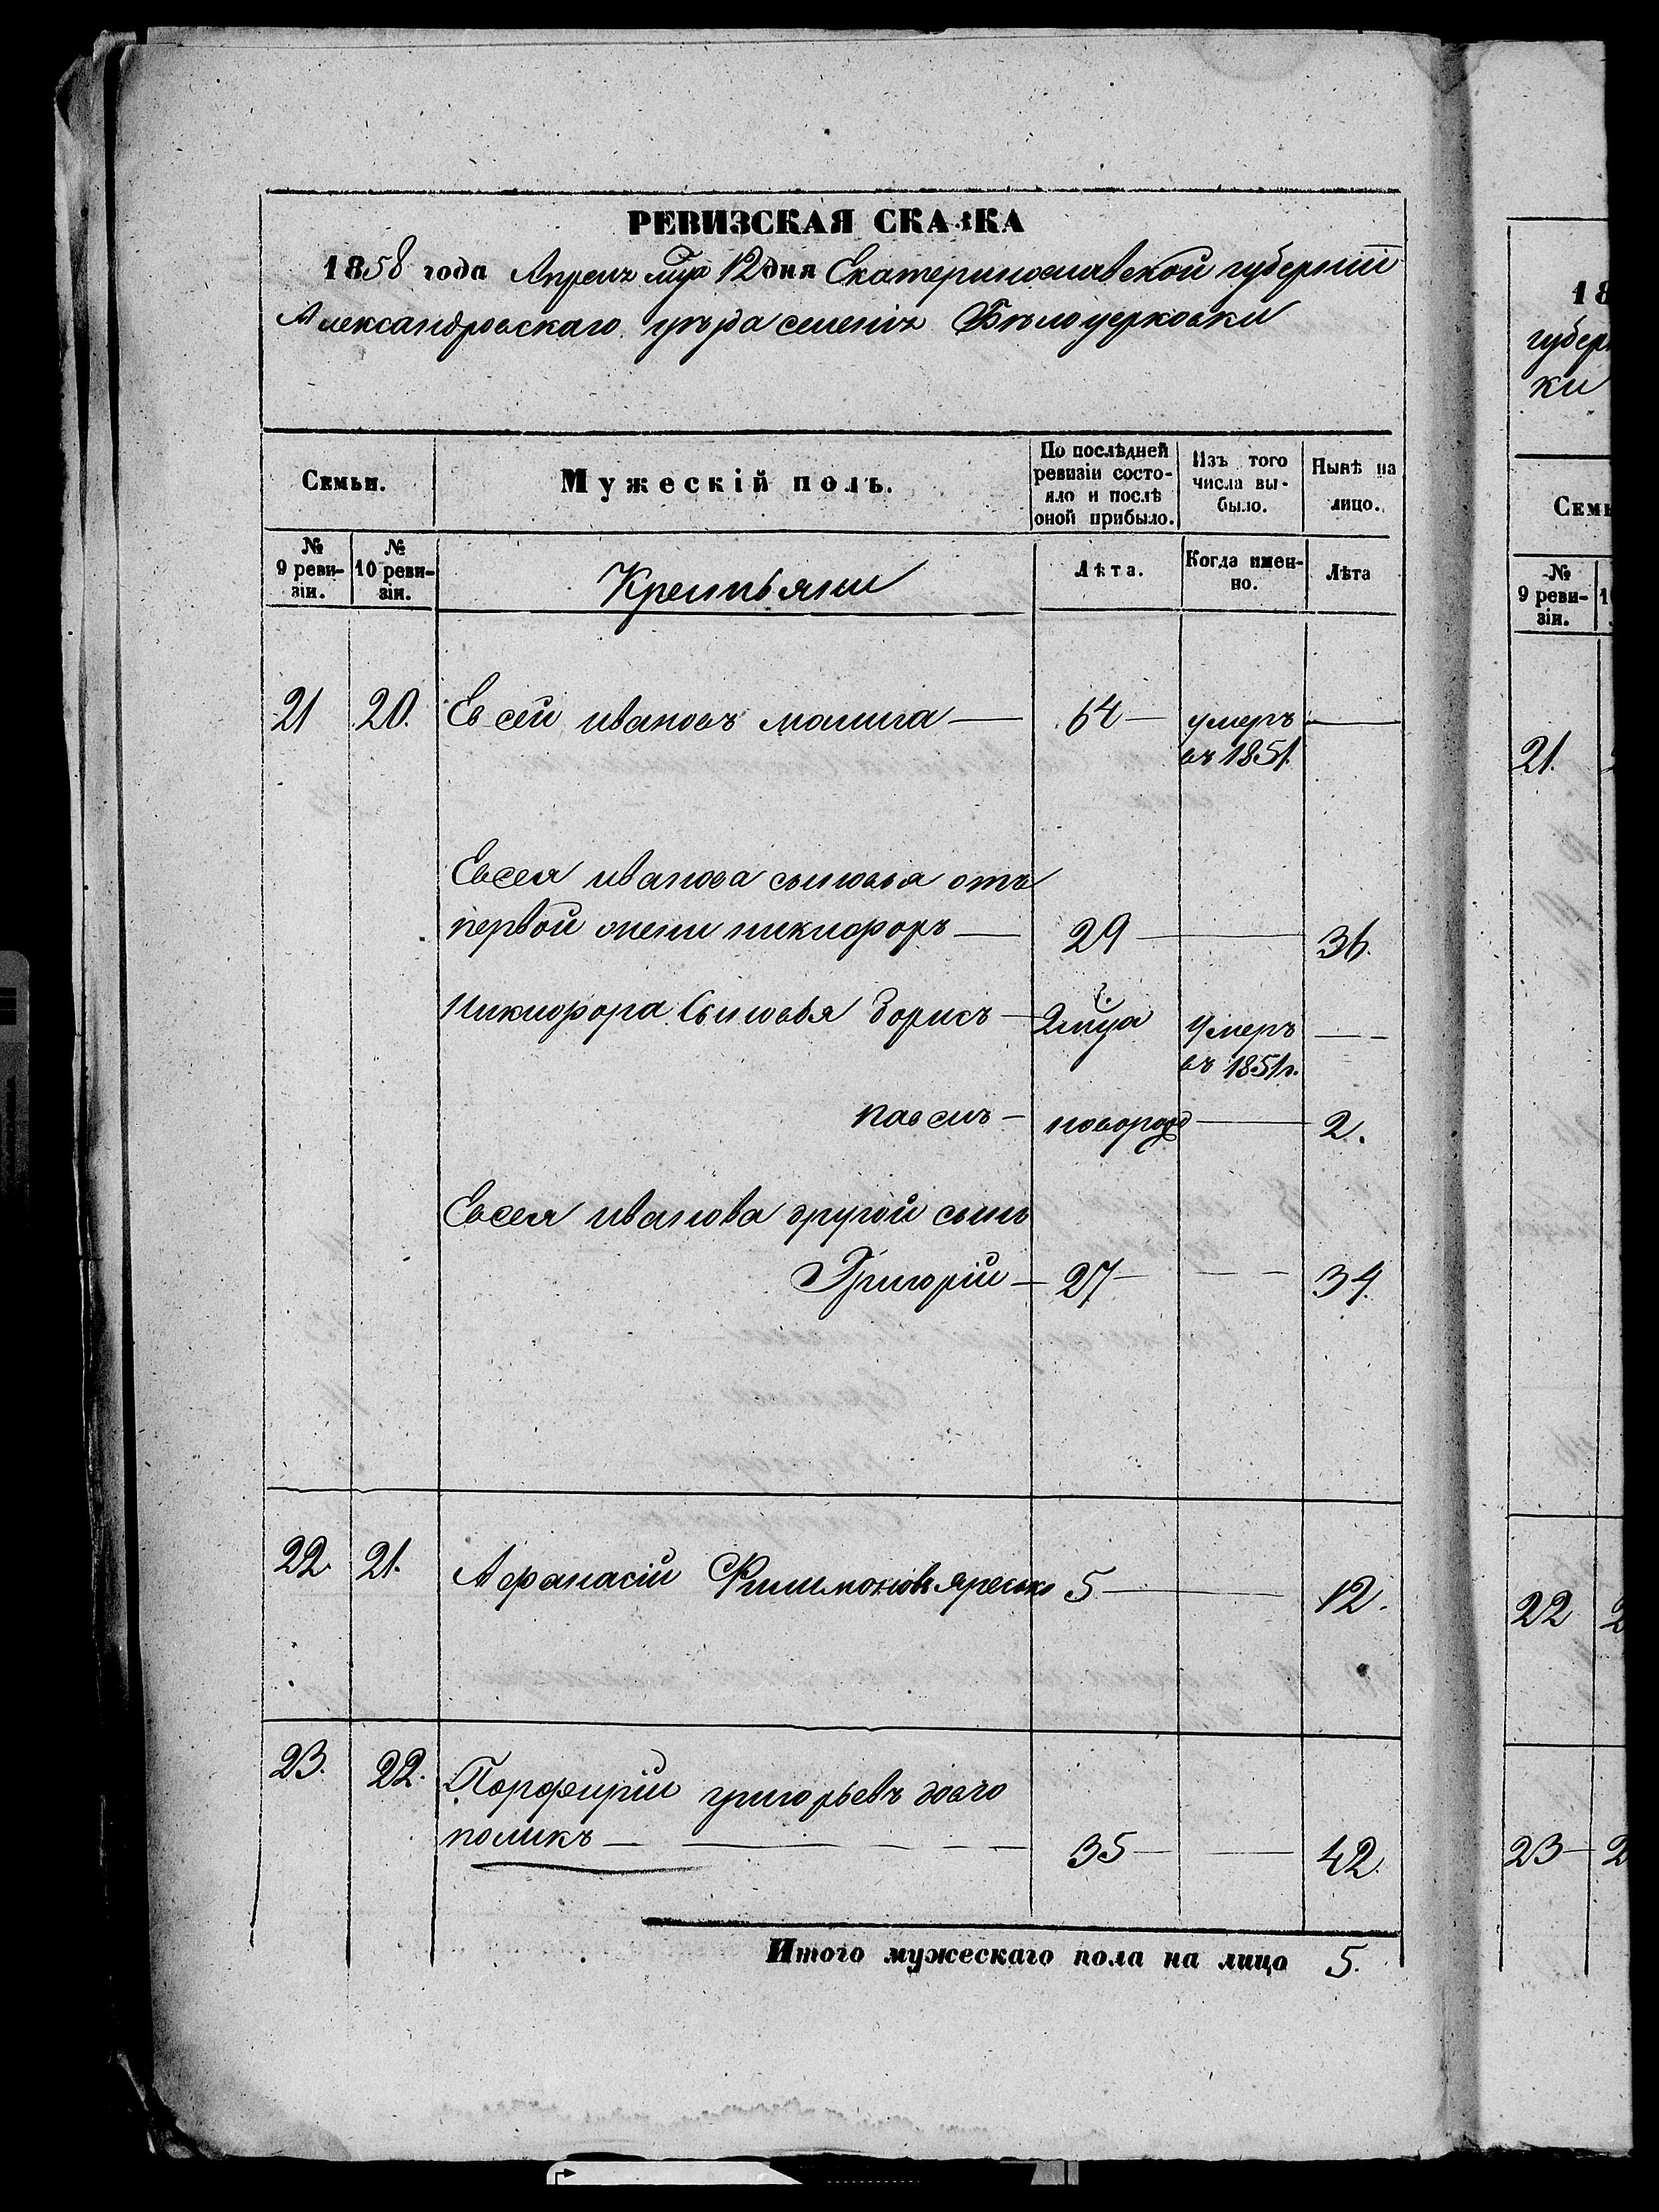 РЕВИЗСКАЯ СКАЗКА
1858 года Апреля мца 12 дня Екатеринославской губерніи
Александровскаго уѣзда селенія Бѣлоцерковки
Семьи.
Мужескій полъ.
По послѣдней ревизіи состояло и послѣ оной прибыло.
Изъ того числа выбыло.
Нынѣ на лицо.
№ 9 ревизіи.
№ 10 ревизіи.
Крестьяни
Лѣта.
Когда именно.
Лѣта
21 20. Евсей ивановъ малига — 64 — умеръ —
въ 1851.
Евсея иванова сыновья отъ
первой жены никифоръ — 29 — 36.
Никифора Сыновья борисъ — 2 мца умеръ — -
въ 1851 г.
павелъ — новорожд — 2.
Евсея иванова другой сынъ
Григорій — 27 — — 34.
22 21. Афанасій Филимоновъ яресько 5 — 12.
23. 22. Порфирій григорьевъ довго
поликъ — 35 — 42.
Итого мужескаго пола на лицо 5.
18
губер
ки
Семь
№ 9 ревизіи.
21.
22
23